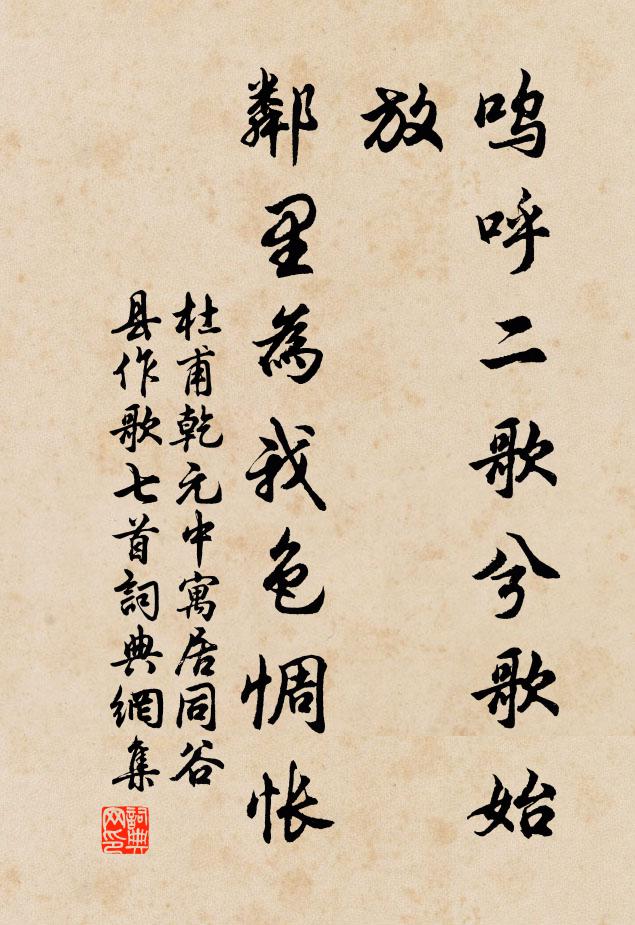 呜呼二歌兮歌始
放
鄰里為我色惆怅
杜甫乾元中寓居同谷
县作歌七首詞典網集
詞典
网印